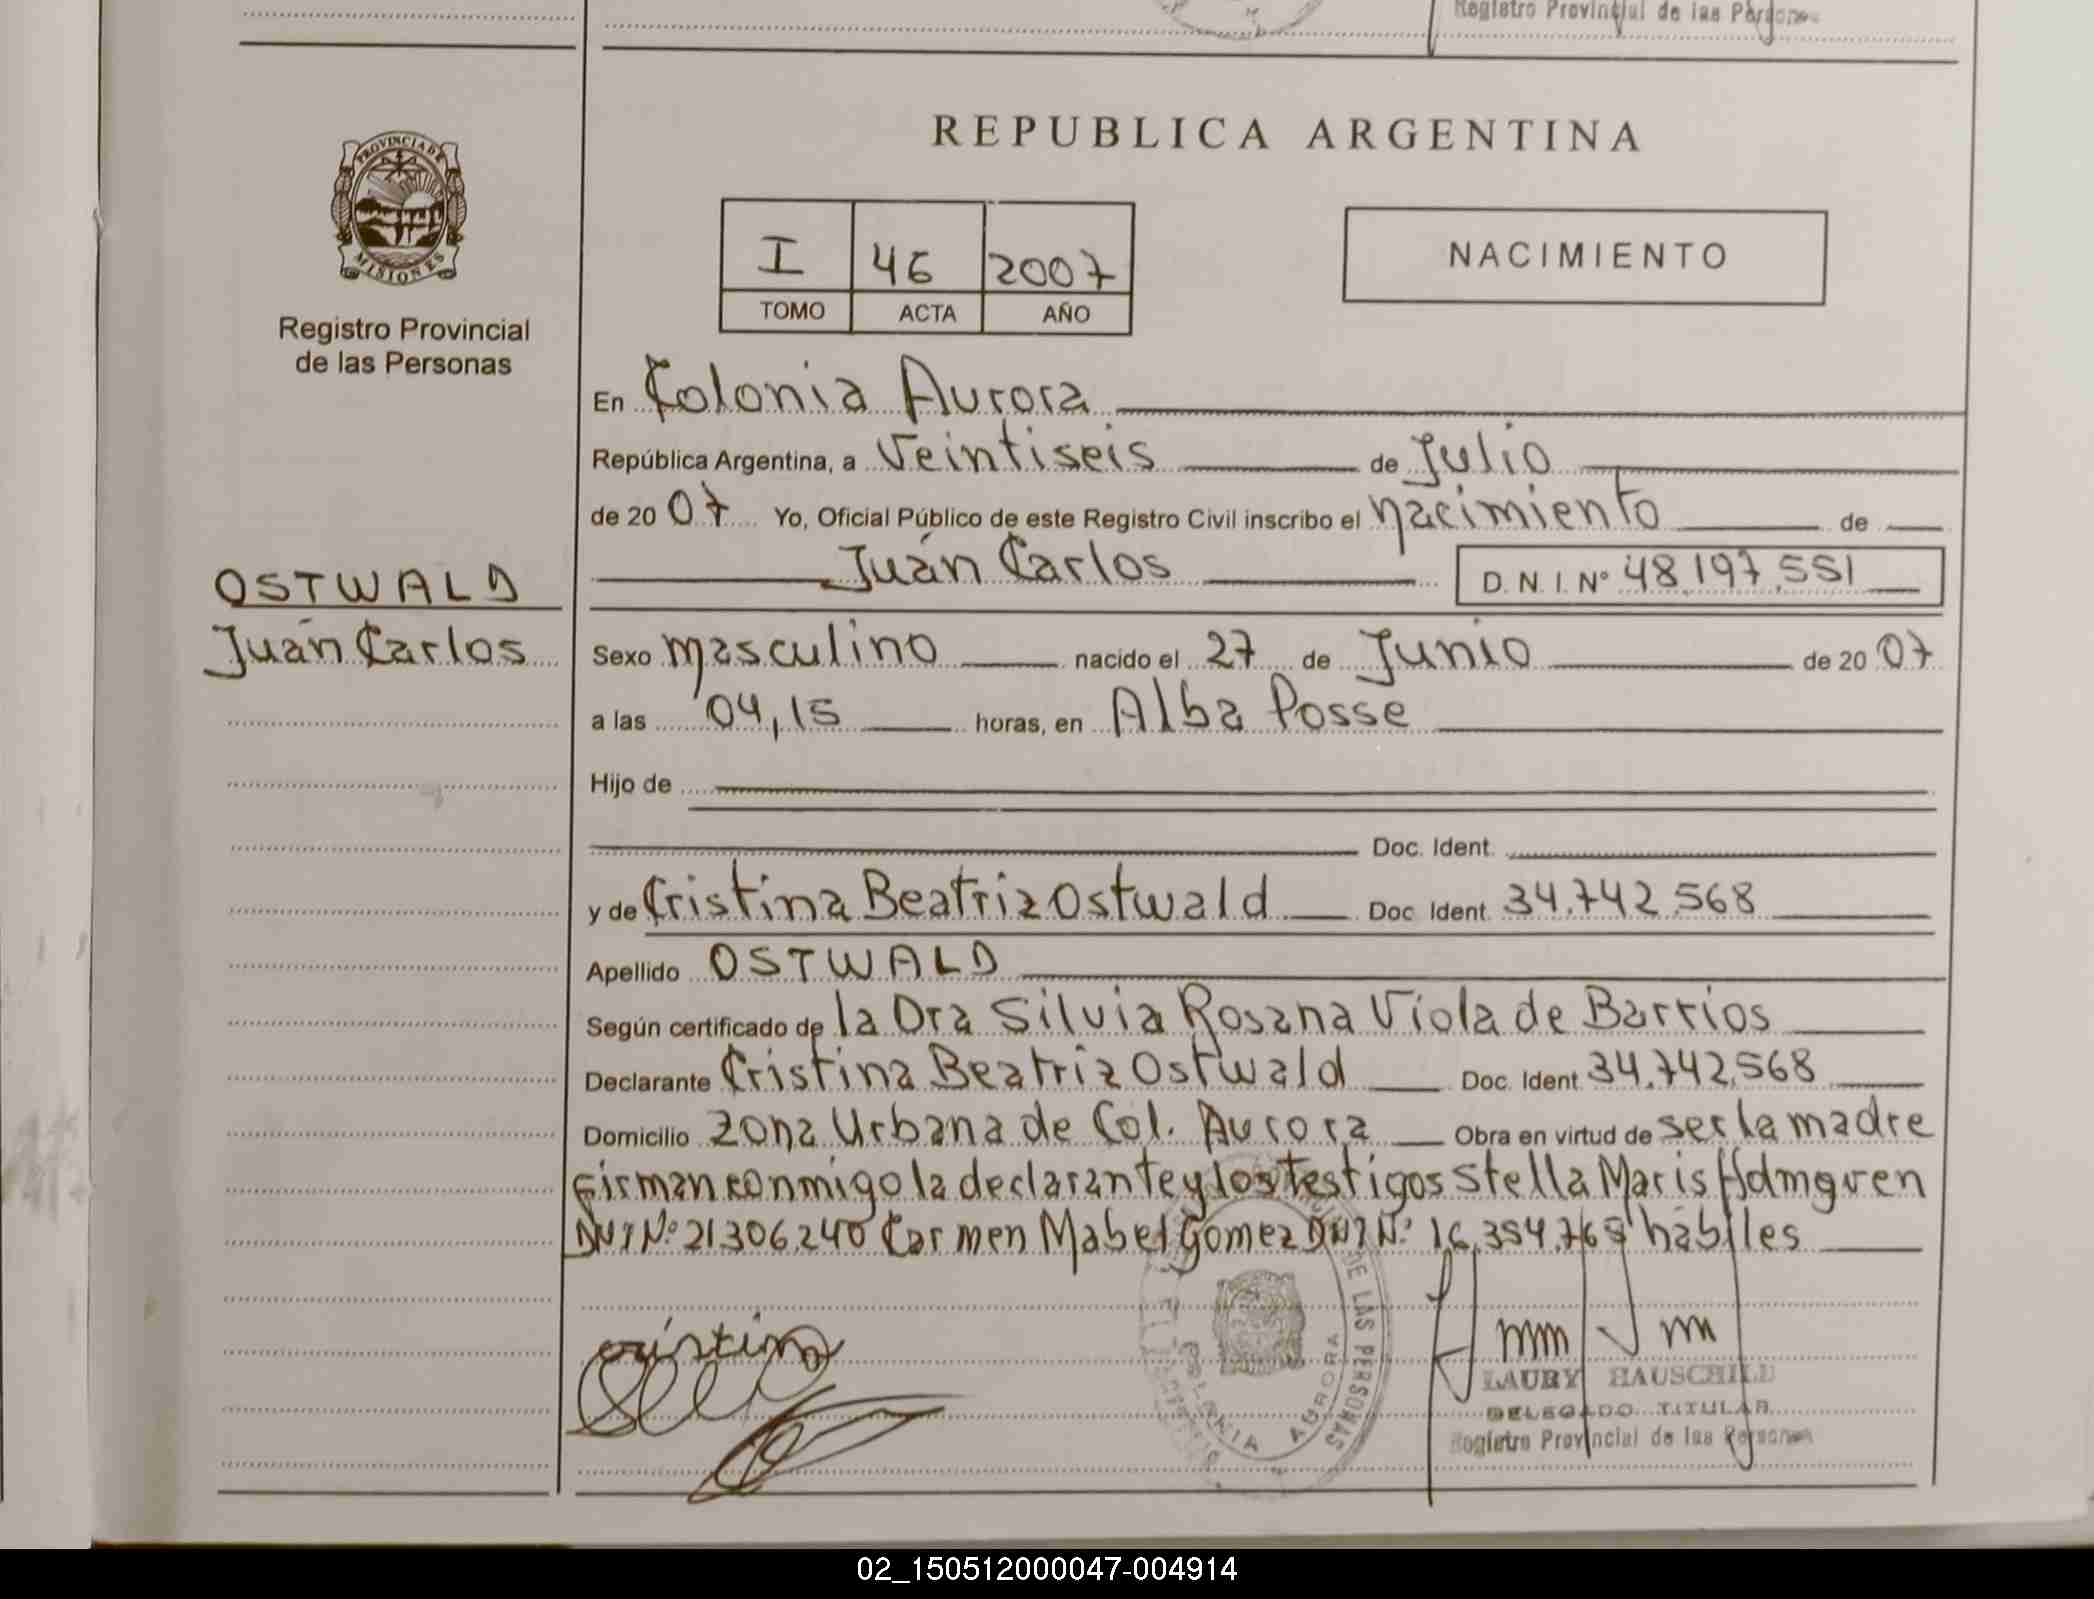 Registro Provincial de las Personas
REPUBLICA ARGENTINA
PROVINCIA DE
MISIONES
Registro Provincial
de las Personas
I 46 2007
TOMO ACTA AÑO
NACIMIENTO
En Colonia Aurora
República Argentina, a Veintiseis de Julio
de 20 07 Yo, Oficial Público de este Registro Civil inscribo el nacimiento de
Juán Carlos D. N. I. Nº 48.197.551
OSTWALD
Juán Carlos
Sexo masculino nacido el 27 de Junio de 20 07
a las 04,15 horas, en Alba Posse
Hijo de
Doc. Ident.
y de Cristina Beatriz Ostwald Doc. Ident. 34.742.568
Apellido OSTWALD
Según certificado de la Dra Silvia Rosana Viola de Barrios
Declarante Cristina Beatriz Ostwald Doc. Ident. 34.742.568
Domicilio Zona Urbana de Col. Aurora Obra en virtud de ser la madre
Firman conmigo la declarante y los testigos Stella Maris
DNI Nº 21.306.240 Carmen Mabel Gomez DNI Nº habiles
cristina
DE LAS PERSONAS
COLONIA AURORA
LAURY HAUSCHILD
DELEGADO TITULAR
Registro Provincial de las Personas
02_150512000047-004914